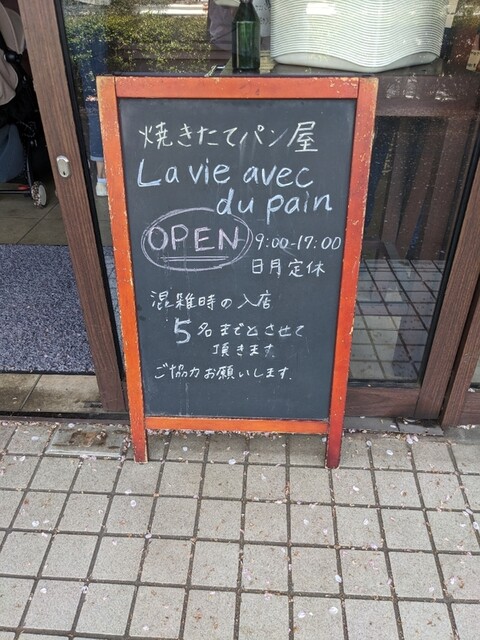 焼きたてパン屋
La vie avec
du pain
OPEN 9:00-17:00
日月定休
混雑時の入店
5名までとさせて
頂きます
ご協力お願いします.